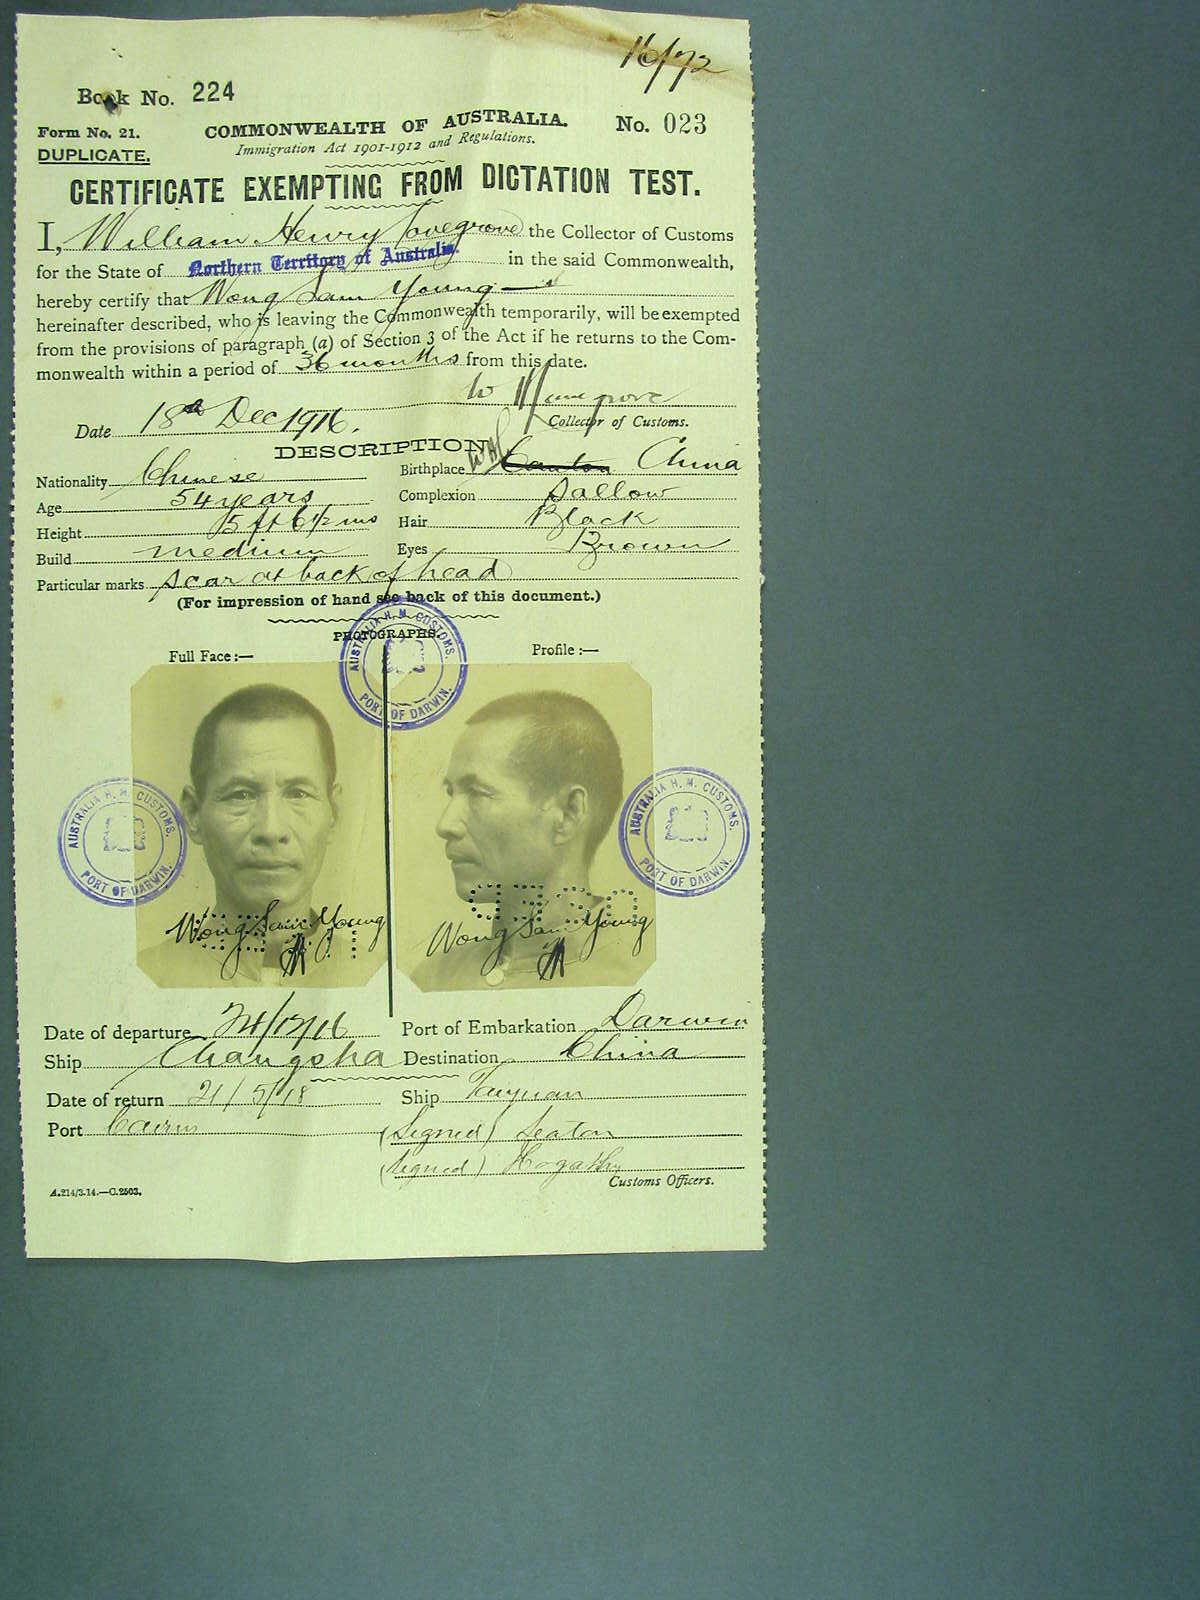 16/72
Book No. 224
Form No. 21. COMMONWEALTH OF AUSTRALIA. No. 023
DUPLICATE. Immigration Act 1901-1912 and Regulations.
CERTIFICATE EXEMPTING FROM DICTATION TEST.
I, William Henry Lovegrove the Collector of Customs
for the State of Northern Territory of Australia. in the said Commonwealth,
hereby certify that Wong Sam Young
hereinafter described, who is leaving the Commonwealth temporarily, will be exempted
from the provisions of paragraph (a) of Section 3 of the Act if he returns to the Com-
monwealth within a period of 36 months from this date.
W H Lovegrove
Date 18th Dec 1916. Collector of Customs.
DESCRIPTION
Nationality Chinese Birthplace WHL Canton China
Age 54 years Complexion Sallow
Height 5 ft 6 1/2 ins Hair Black
Build medium Eyes Brown
Particular marks scar at back of head
(For impression of hand see back of this document.)
PHOTOGRAPHS.
Full Face:— Profile:—
AUSTRALIA H. M. CUSTOMS. PORT OF DARWIN.
AUSTRALIA H. M. CUSTOMS. PORT OF DARWIN.
AUSTRALIA H. M. CUSTOMS. PORT OF DARWIN.
Wong Sam Young Wong Sam Young
Date of departure 24/12/16 Port of Embarkation Darwin
Ship Changsha Destination China
Date of return 21/5/18 Ship Taiyuan
Port Cairns (Signed) Seaton
(Signed) Hogarth
Customs Officers.
A.214/3.14.—C.2503.